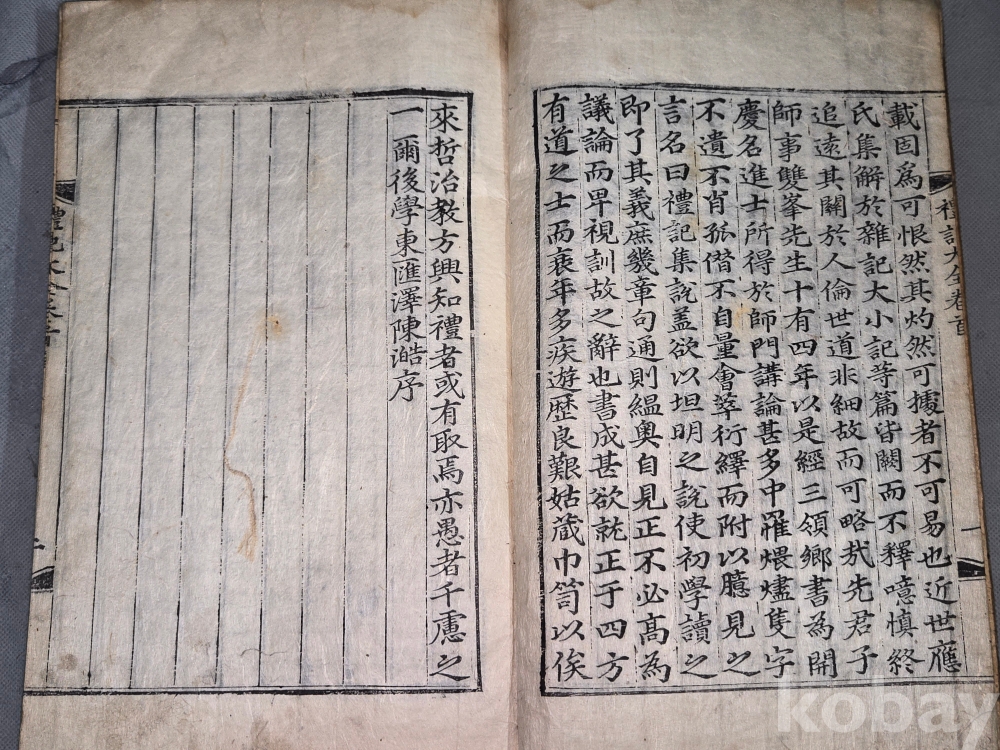 禮記大全卷首
一
載固爲可恨然其灼然可據者不可易也近世應
氏集解於雜記大小記等篇皆闕而不釋噫慎終
追遠其關於人倫世道非細故而可略㢤先君子
師事雙峯先生十有四年以是經三領鄉書為開
慶名進士所得於師門講論甚多中罹煨燼隻字
不遺不肖孤僣不自量會萃衍繹而附以臆見之
言名曰禮記集說盖欲以坦明之說使初學讀之
即了其義庶幾章句通則縕奥自見正不必髙為
議論而卑視訓故之辭也書成甚欲就正于四方
有道之士而衰年多疾遊歷良艱姑蔵巾笥以俟
來哲治教方興知禮者或有取焉亦愚者千慮之
一爾後學東匯澤陳澔序
禮記大全卷首
二
kobay